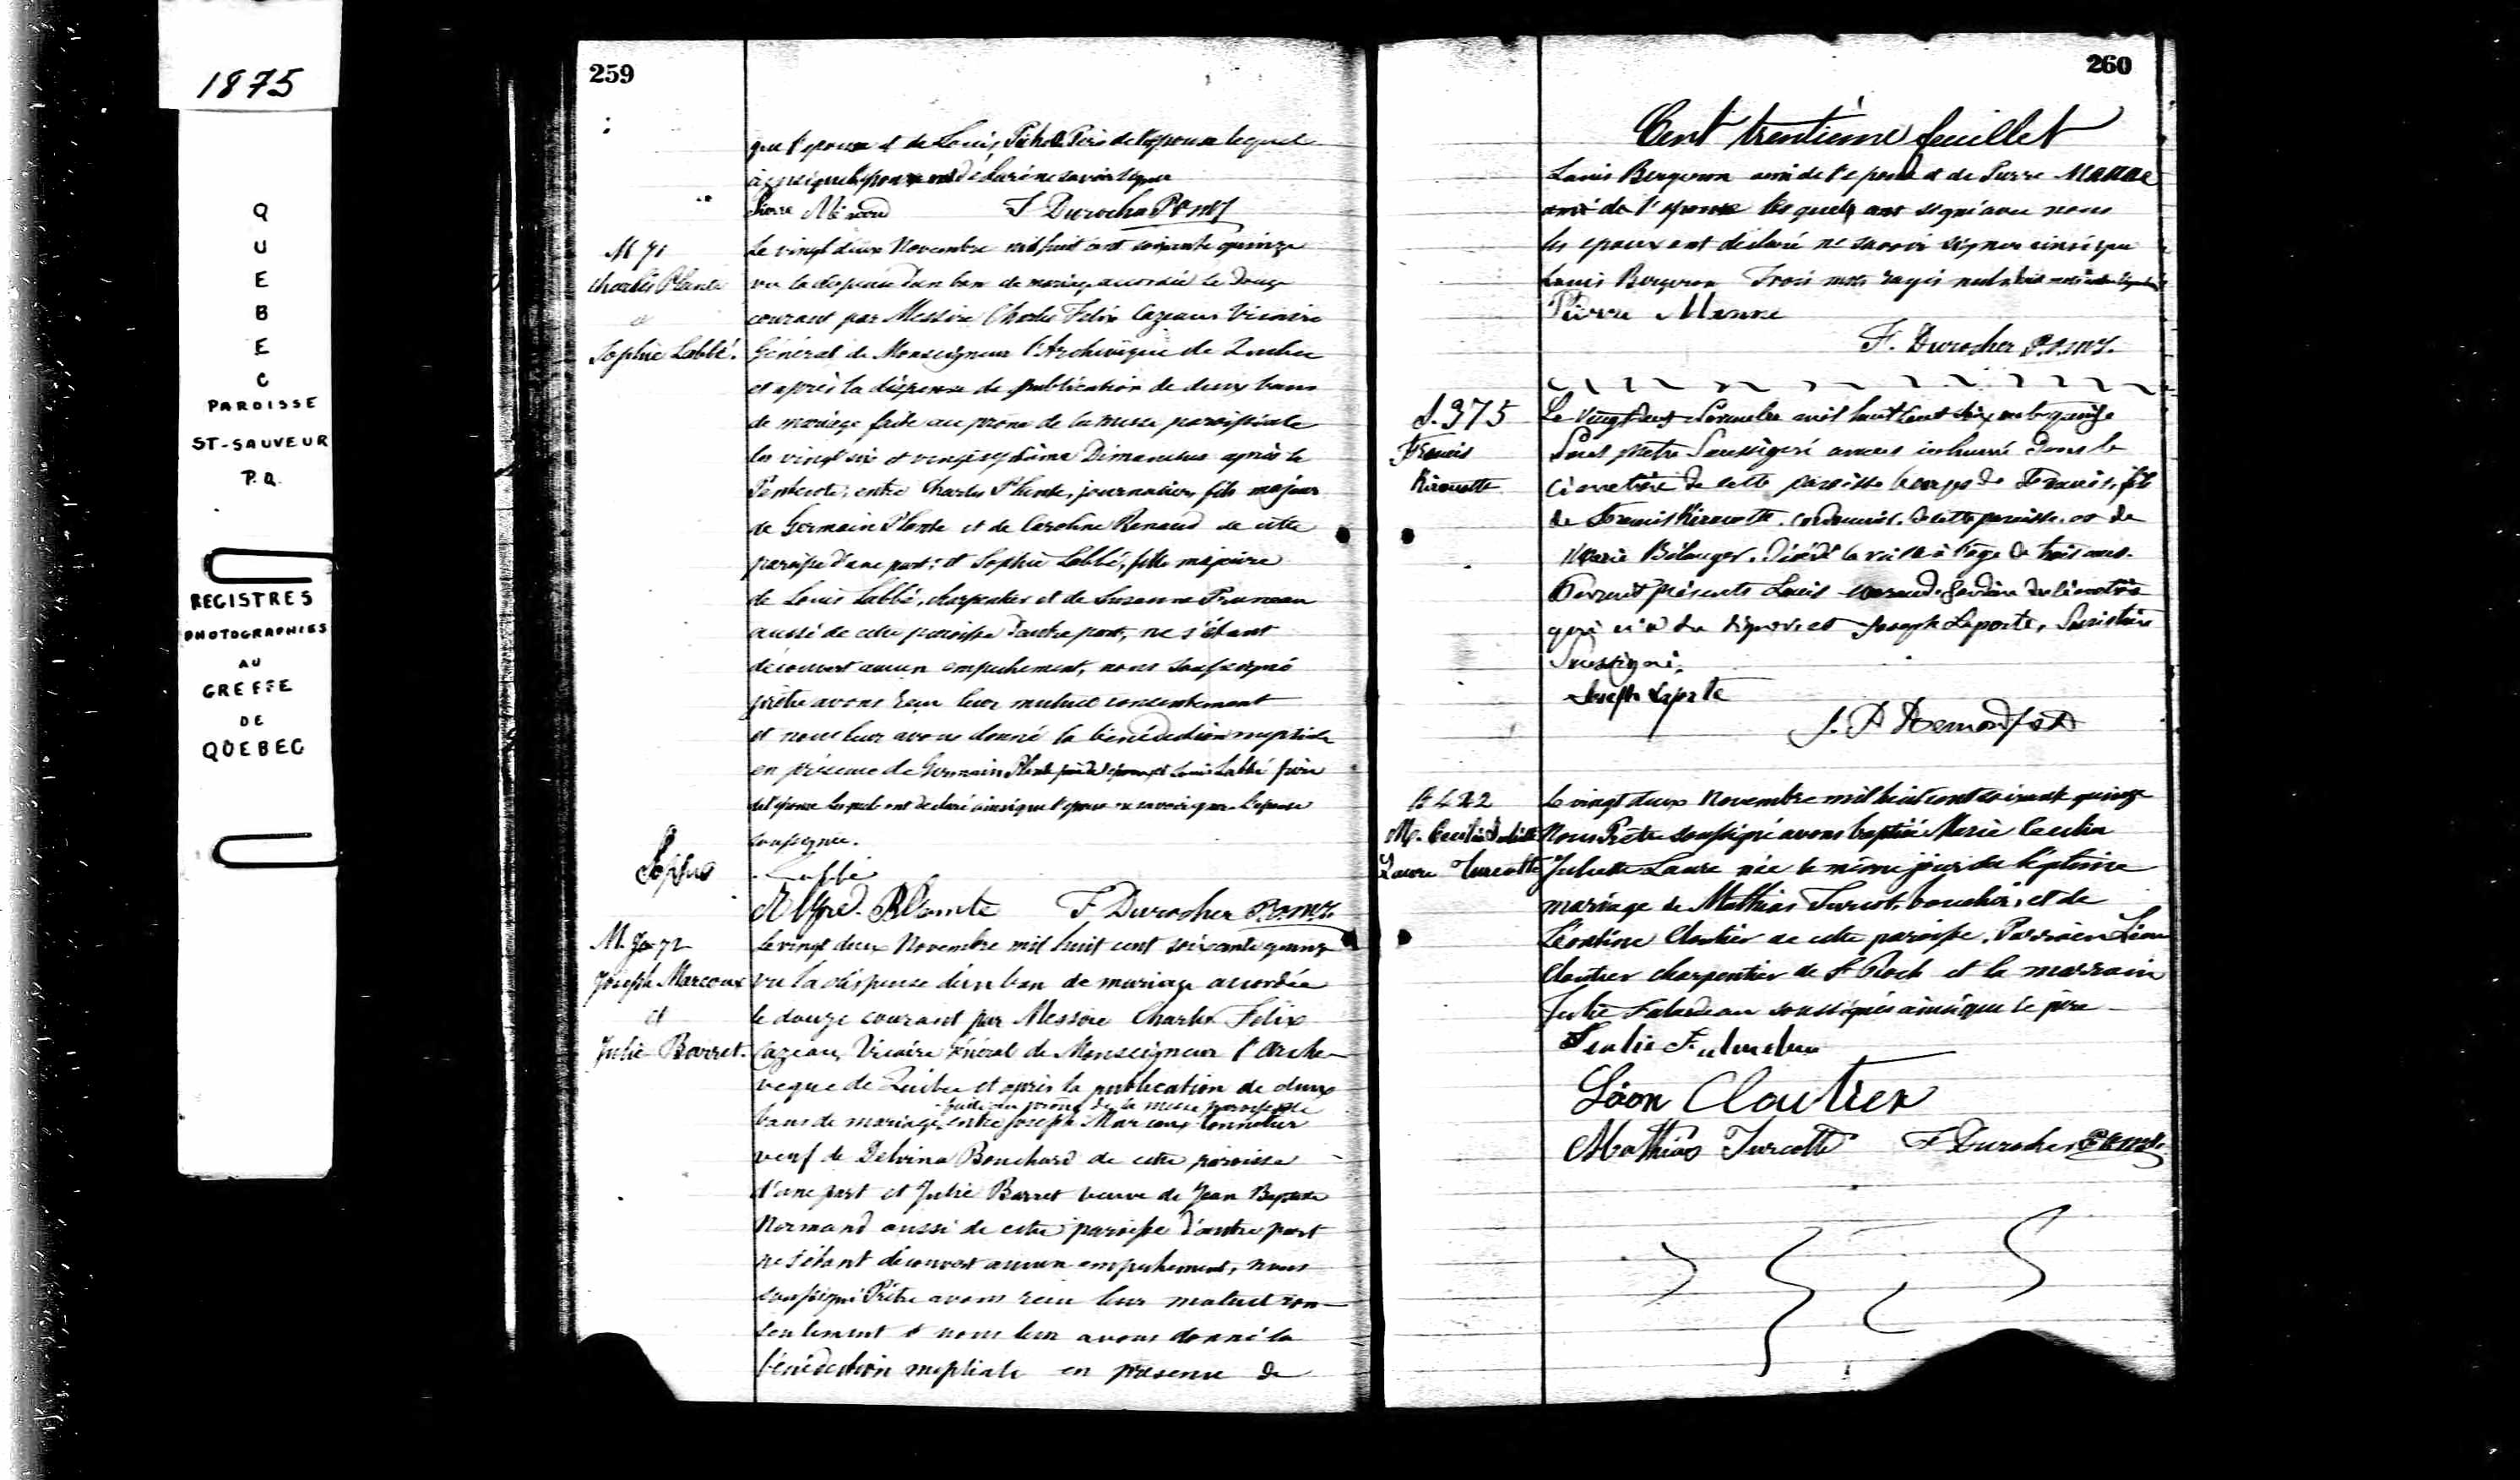 1875
QUEBEC
PAROISSE
ST-SAUVEUR
P.Q.
REGISTRES
PHOTOGRAPHIES
AU
GREFFE
DE
QUEBEC
259
que l'epoux et de Louis Père de l'epouse lequel
ainsi que l'epouse ont déclaré ne savoir signer
Pierre F Durocher P.O.M.I.
M 71
Charles Plante
et
Sophie Labbé.
Le vingt deux Novembre mil huit cent soixante quinze
vu la dispense d'un ban de mariage accordée le douze
courant par Messire Charles Felix Cazeau Vicaire
Général de Monseigneur l'Archevêque de Québec
et après la dispense de publication de deux bans
de mariage faite au prône de la messe paroissiale
les vingt six et vingt septième Dimanches après la
Pentecote; entre Charles Plante, journalier fils majeur
de Germain Plante et de Caroline Renaud de cette
paroisse d'une part; et Sophie Labbé, fille majeure
de Louis Labbé, charpentier et de Suzanne Pruneau
aussi de cette paroisse d'autre part, ne s'étant
découvert aucun empêchement, nous soussigné
prêtre avons reçu leur mutuel consentement
et nous leur avons donné la bénédiction nuptiale
en présence de Germain Plante père de l'epoux et Louis Labbé père
de l'epouse lesquels ont declaré ainsi que l'epoux ne savoir signer l'epouse
soussignée.
Sophie Labbé
Alfred Plante F Durocher P.O.M.I.
M. 72
Joseph Marcoux
et
Julie Barret.
Le vingt deux Novembre mil huit cent soixante quinze
vu la dispense d'un ban de mariage accordée
le douze courant par Messire Charles Felix
Cazeau, Vicaire Général de Monseigneur l'Arche-
veque de Québec et après la publication de deux
faite au prône de la messe paroissiale
bans de mariage, entre Joseph Marcoux tonnelier
veuf de Delvina Bouchard de cette paroisse
d'une part et Julie Barret veuve de Jean Baptiste
Normand aussi de cette paroisse d'autre part
ne s'étant découvert aucun empêchement, nous
soussigné Prêtre avons reçu leur mutuel con-
sentement et nous leur avons donné la
bénédiction nuptiale en présence de
260
Cent trentième feuillet
Louis Bergeron ami de l'epoux et de Pierre
ami de l'epouse lesquels ont signé avec nous
les epoux ont déclaré ne savoir signer ainsi que
Louis Bergeron Trois mots rayés nuls
Pierre
F. Durocher P.O.M.I.
S. 375
Francis
Kirouette
Le vingt deux Novembre mil huit cent soixante quinze
Nous prêtre Soussigné avons inhumé dans le
Cimetière de cette paroisse le corps de Francis, fils
de Francis Kirouette, cordonnier, de cette paroisse, et de
Marie Bélanger, décédé la veille à l'âge de trois ans.
Furent présents Louis gardien du cimetière
qui n'a su signer et Joseph Laporte, Sacristain
Soussigné.
Joseph Laporte
B 422
M. Cecilia Juliette
Laure Turcotte
Le vingt deux Novembre mil huit cent soixante quinze
Nous Prêtre soussigné avons baptisé Marie Cecilia
Juliette Laure née le même jour du légitime
mariage de Mathias Turcot, boucher, et de
Léontine Cloutier de cette paroisse. Parrain Léon
Cloutier charpentier de St Roch et la marraine
Julie Falardeau soussignés ainsi que le père
Julie Falardeau
Léon Cloutier
Mathias Turcotte F Durocher P.O.M.I.